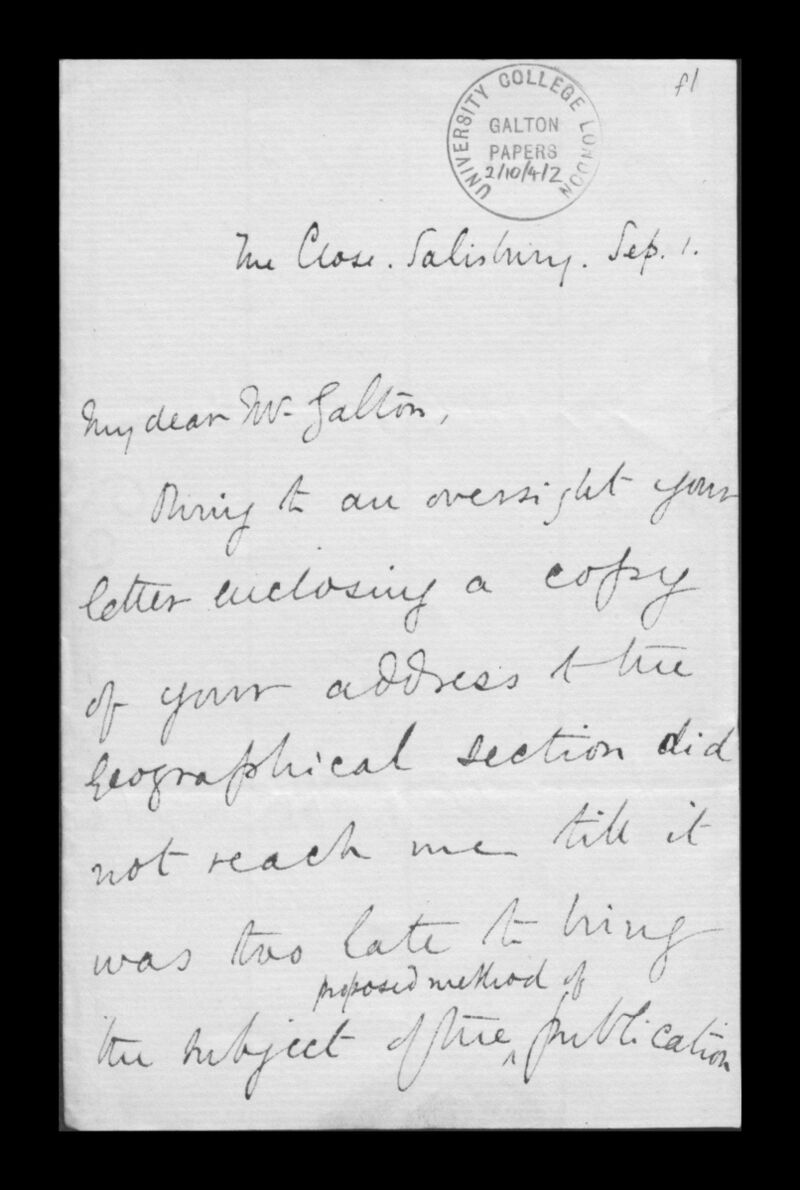 f1
UNIVERSITY COLLEGE LONDON
GALTON
PAPERS
2/10/4/2
The Close. Salisbury. Sep. 1.
My dear Mr. Galton,
Owing to an oversight your
letter enclosing a copy
of your address to the
Geographical section did
not reach me till it
was too late to bring
proposed method of
the subject of the ‸ publication